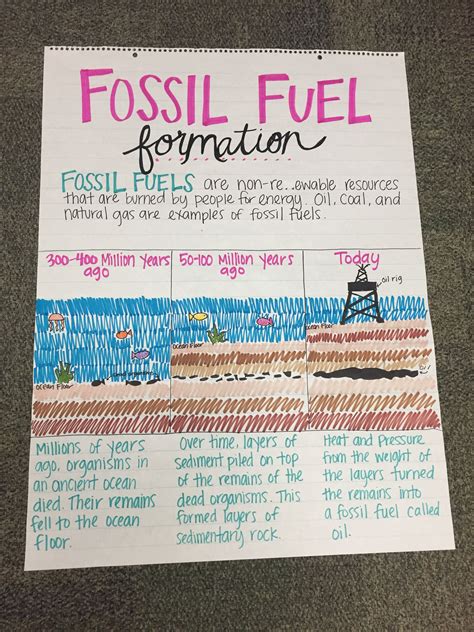 FOSSIL FUEL
formation
FOSSIL FUELS are non-re..ewable resources
that are burned by people for energy. Oil, Coal, and
natural gas are examples of fossil fuels.
300-400 Million Years
ago
50-100 Million Years
ago
Today
oil rig
Ocean Floor
Ocean Floor
Ocean Floor
Oil
Millions of years
ago, organisms in
an ancient ocean
died. Their remains
fell to the ocean
floor.
Over time, layers of
sediment piled on top
of the remains of the
dead organisms. This
formed layers of
sedimentary rock.
Heat and Pressure
from the weight of
the layers turned
the remains into
a fossil fuel called
oil.